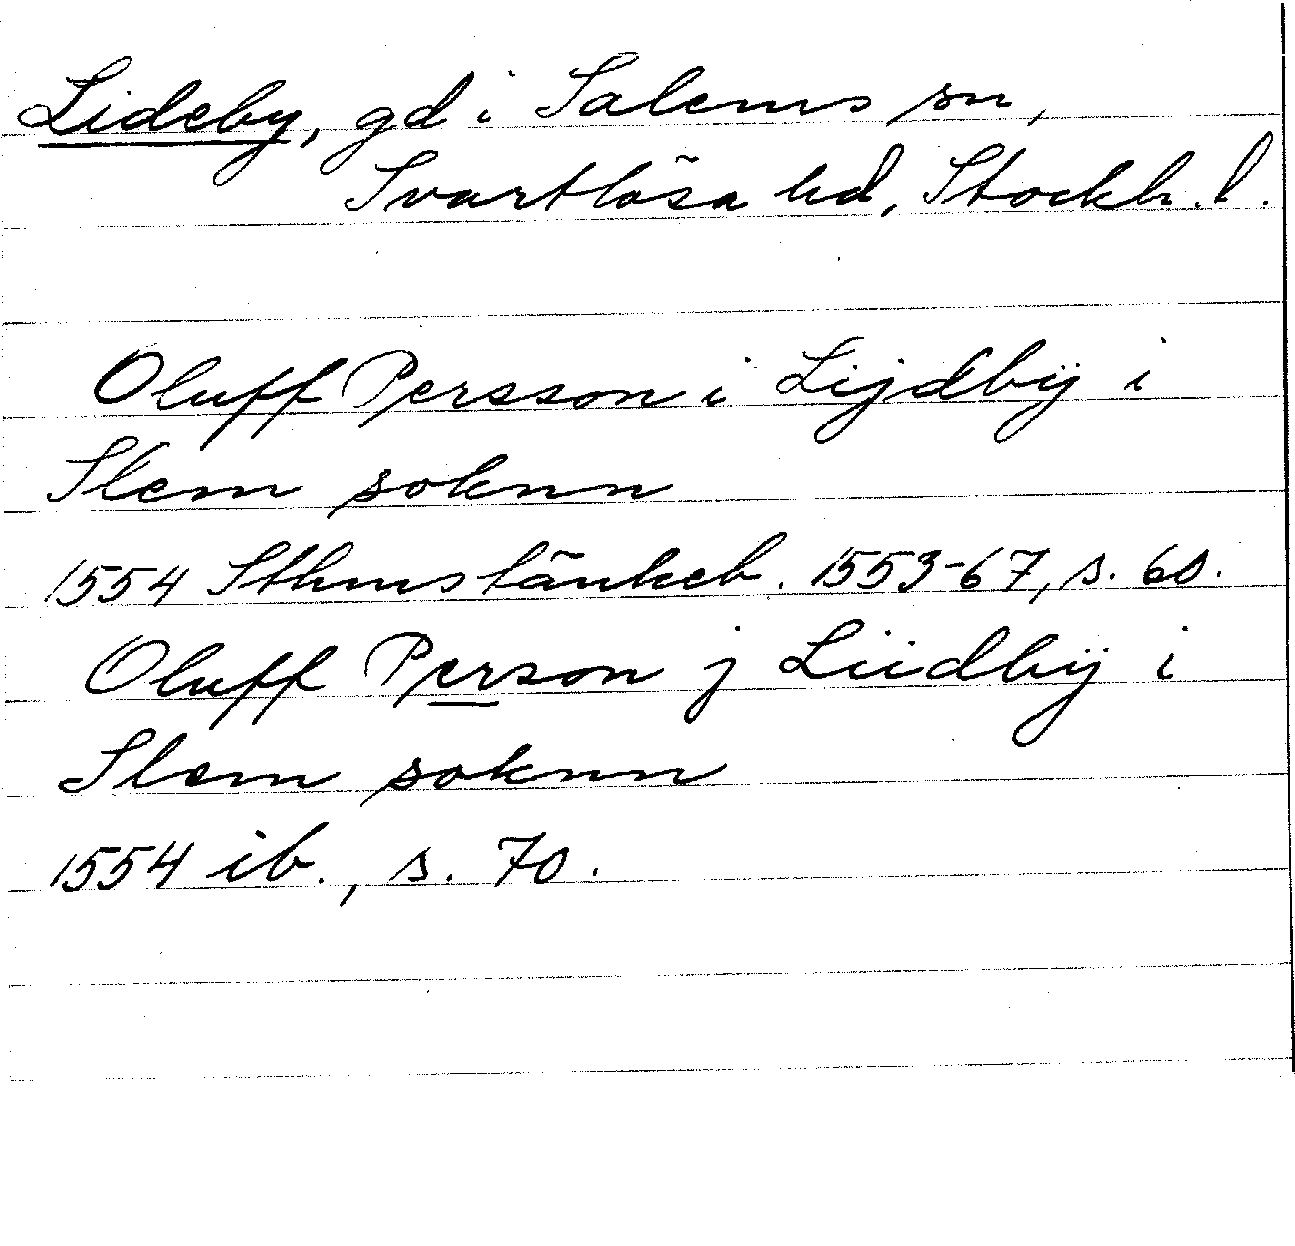 Lideby, gd i Salems sn,
Svartlösa hd, Stockh. l.
Oluff Persson i Lijdbÿ i
Slem soknn
1554 Sthms tänkeb. 1553-67, s. 60.
Oluff Person j Liidbÿ i
Slem soknn
1554 ib., s. 70.